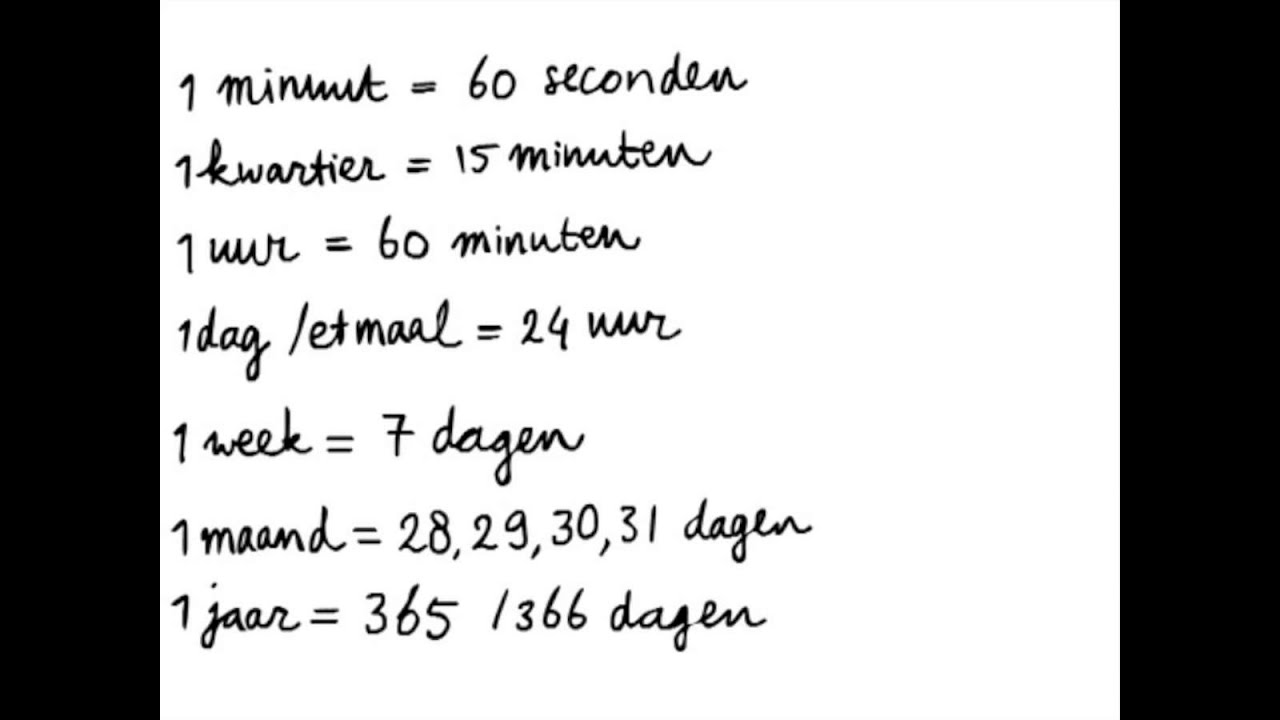 1 minuut = 60 seconden
1 kwartier = 15 minuten
1 uur = 60 minuten
1 dag /etmaal = 24 uur
1 week = 7 dagen
1 maand = 28, 29, 30, 31 dagen
1 jaar = 365 /366 dagen